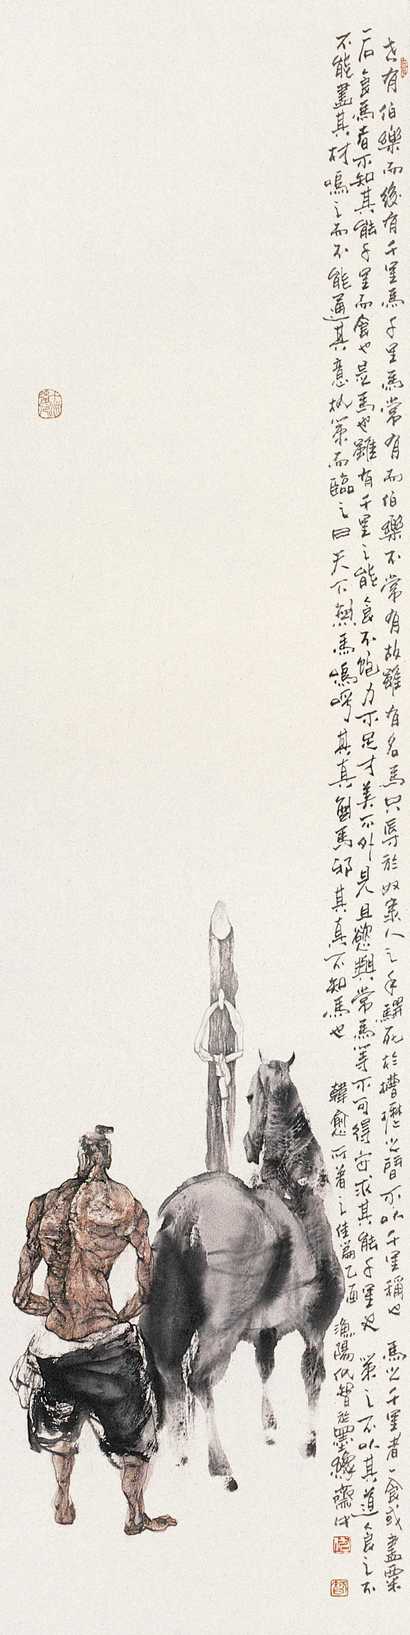 世有伯樂而後有千里馬千里馬常有而伯樂不常有故雖有名馬只辱於奴隸人之手駢死於槽櫪之間不以千里稱也 馬之千里者一食或盡粟
一石食馬者不知其能千里而食也是馬也雖有千里之能食不飽力不足才美不外見且慾與常馬等不可得安求其能千里也 策之不以其道食之不
不能盡其材鳴之而不能通其意執策而臨之曰天下無馬嗚呼其真無馬邪其真不知馬也 韓愈所著之佳篇乙酉 漁陽 智於墨緣齋